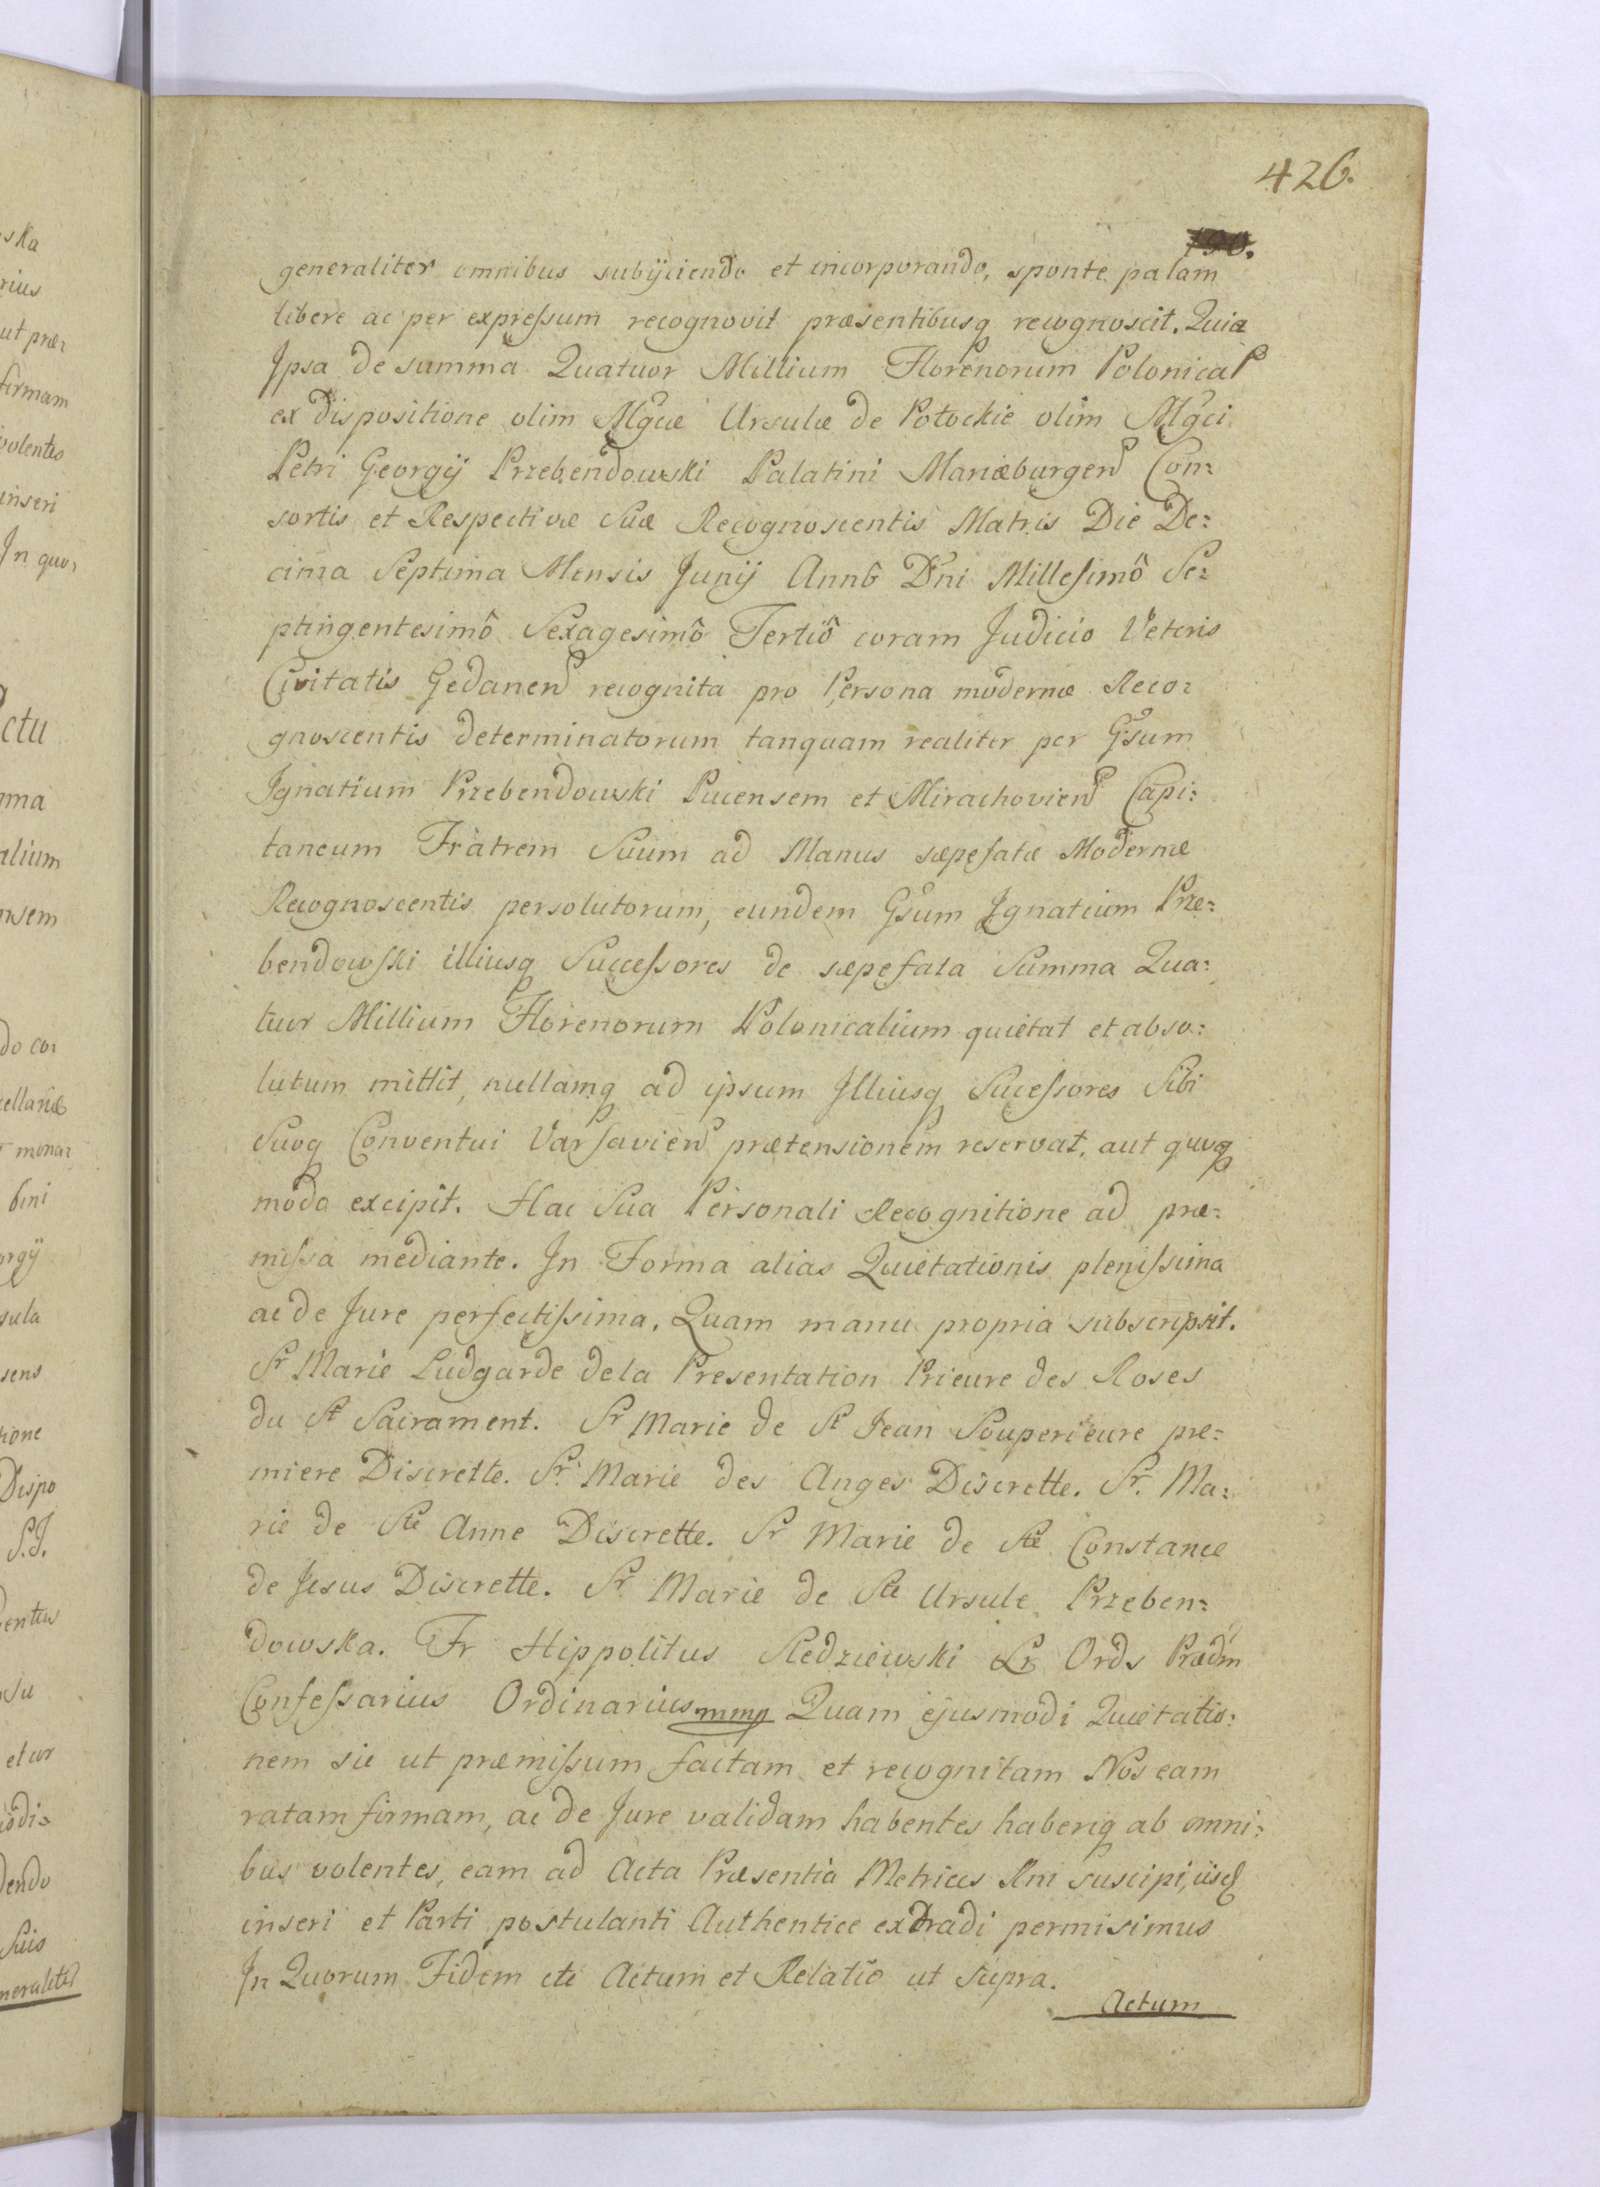 426.
190.
generaliter omnibus subijciendo et incorporando, sponte palam
libere ac per expressum recognovit præsentibusq recognoscit. Quia
Ipsa de summa Quatuor Millium Florenorum Polonical
ex dispositione olim Mgcæ Ursulæ de Potockie olim Mgci
Petri Georgij Przebendowski Palatini Mariæburgen Con:
sortis et Respectivæ Suæ Recognoscentis Matris Die De:
cima Septima Mensis Junij Annô Dni Millesimô Se:
ptingentesimô Sexagesimô Tertiô coram Judicio Veteris
Civitatis Gedanen recognita pro Persona modernæ Reco:
gnoscentis determinatorum tanquam realiter per Gsum
Ignatium Przebendowski Pucensem et Mirachovien Capi:
taneum Fratrem Suum ad Manus sæpefatæ Modernæ
Recognoscentis persolutorum, eundem Gsum Ignatium Prze:
bendowski illiusq Successores de sæpefata Summa Qua:
tuor Millium Florenorum Polonicalium quietat et abso:
lutum mittit, nullamq ad ipsum Illiusq Sucessores Sibi
Suoq Conventui Varsavien prætensionem reservat, aut quoq
modo excipit. Hac Sua Personali Recognitione ad præ:
missa mediante. In Forma alias Quietationis plenissima
ac de Jure perfectissima. Quam manu propria subscripsit.
Sr Marie Ludgarde dela Presentation Prieure des Roses
du St Sacrament. Sr Marie de St Jean Souperieure pre:
miere Discrette. Sr Marie des Anges Discrette. Sr. Ma:
rie de Ste Anne Discrette. Sr Marie de Ste Constance
de Jesus Discrette. Sr Marie de Ste Ursule Przeben:
dowska. Fr Hippolitus Sledziewski Ords Prædm
Confessarius Ordinarius mmp Quam ejusmodi Quietatio:
nem sic ut præmissum factam et recognitam Nos eam
ratam firmam, ac de Jure validam habentes haberiq ab omni:
bus volentes, eam ad Acta Præsentia Metrices Rni suscipi, iisq
inseri et Parti postulanti Authentice extradi permisimus
In Quorum Fidem etc Actum et Relatio ut Supra.
Actum